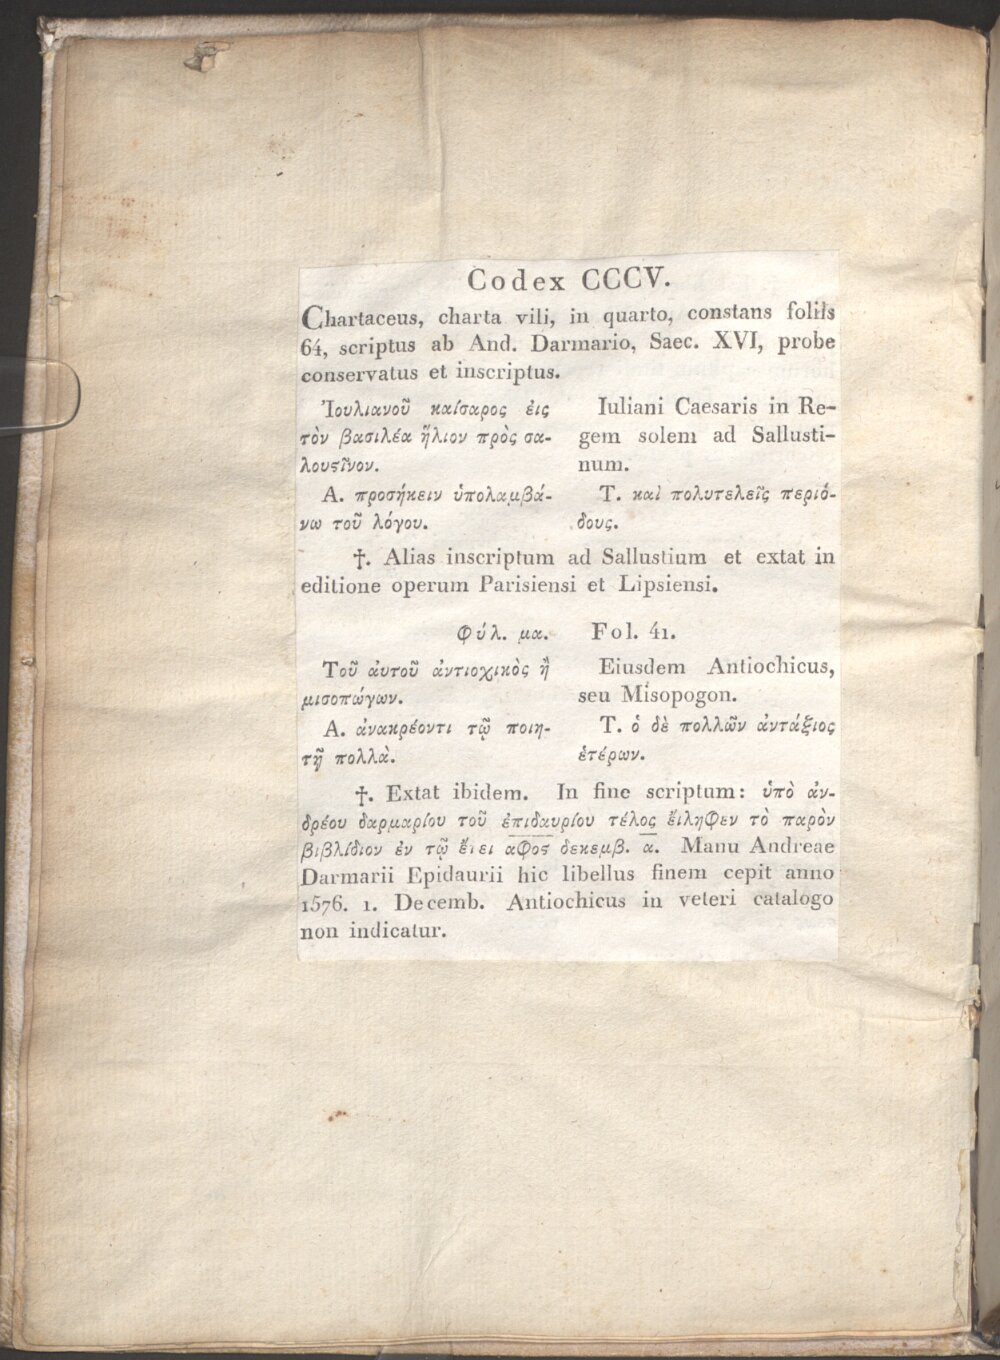 Codex CCCV.
Chartaceus, charta vili, in quarto, constans foliis
64, scriptus ab And. Darmario, Saec. XVI, probe
conservatus et inscriptus.
Ἰουλιανοῦ καίσαρος ἐις
τὸν βασιλέα ἥλιον πρὸς σα-
λουϛῖνον.
Α. προσήκειν ὑπολαμβά-
νω τοῦ λόγου.
Iuliani Caesaris in Re-
gem solem ad Sallusti-
num.
Τ. καὶ πολυτελεῖς περιό-
δους.
†. Alias inscriptum ad Sallustium et extat in
editione operum Parisiensi et Lipsiensi.
Φύλ. μα. Fol. 41.
Τοῦ ἀυτοῦ ἀντιοχικὸς ἢ
μισοπώγων.
Α. ἀνακρέοντι τῷ ποιη-
τῇ πολλὰ.
Eiusdem Antiochicus,
seu Misopogon.
Τ. ὁ δὲ πολλῶν ἀντάξιος
ἑτέρων.
†. Extat ibidem. In fine scriptum: ὑπὸ ἀν-
δρέου δαρμαρίου τοῦ ἐπιδαυρίου τέλος ἔιληφεν τὸ παρὸν
βιβλίδιον ἐν τῷ ἔτει α̅φ̅ο̅ϛ̅ δεκεμβ. α̅. Manu Andreae
Darmarii Epidaurii hic libellus finem cepit anno
1576. 1. Decemb. Antiochicus in veteri catalogo
non indicatur.